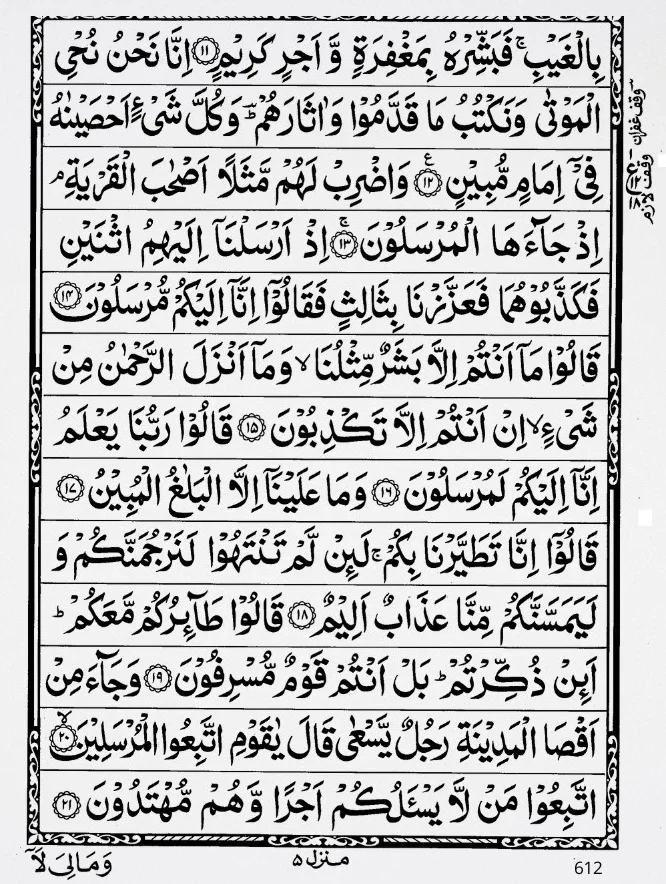 بِالْغَيْبِ ۚ فَبَشِّرْهُ بِمَغْفِرَةٍ وَّ اَجْرٍ كَرِيْمٍ ﴿۱۱﴾ اِنَّا نَحْنُ نُحْيِ
الْمَوْتٰى وَنَكْتُبُ مَا قَدَّمُوْا وَاٰثَارَهُمْ ؕ وَكُلَّ شَىْءٍ اَحْصَيْنٰهُ
فِىْۤ اِمَامٍ مُّبِيْنٍ ﴿۱۲﴾ ع وَاضْرِبْ لَهُمْ مَّثَلًا اَصْحٰبَ الْقَرْيَةِ ۘ
اِذْ جَآءَهَا الْمُرْسَلُوْنَ ۚ ﴿۱۳﴾ اِذْ اَرْسَلْنَاۤ اِلَيْهِمُ اثْنَيْنِ
فَكَذَّبُوْهُمَا فَعَزَّزْنَا بِثَالِثٍ فَقَالُوْۤا اِنَّاۤ اِلَيْكُمْ مُّرْسَلُوْنَ ﴿۱۴﴾
قَالُوْا مَاۤ اَنْتُمْ اِلَّا بَشَرٌ مِّثْلُنَا ۙ وَمَاۤ اَنْزَلَ الرَّحْمٰنُ مِنْ
شَىْءٍ ۙ اِنْ اَنْتُمْ اِلَّا تَكْذِبُوْنَ ﴿۱۵﴾ قَالُوْا رَبُّنَا يَعْلَمُ
اِنَّاۤ اِلَيْكُمْ لَمُرْسَلُوْنَ ﴿۱۶﴾ وَمَا عَلَيْنَاۤ اِلَّا الْبَلٰغُ الْمُبِيْنُ ﴿۱۷﴾
قَالُوْۤا اِنَّا تَطَيَّرْنَا بِكُمْ ۚ لَئِنْ لَّمْ تَنْتَهُوْا لَنَرْجُمَنَّكُمْ وَ
لَيَمَسَّنَّكُمْ مِّنَّا عَذَابٌ اَلِيْمٌ ﴿۱۸﴾ قَالُوْا طَآئِرُكُمْ مَّعَكُمْ ؕ
اَئِنْ ذُكِّرْتُمْ ؕ بَلْ اَنْتُمْ قَوْمٌ مُّسْرِفُوْنَ ﴿۱۹﴾ وَجَآءَ مِنْ
اَقْصَا الْمَدِيْنَةِ رَجُلٌ يَّسْعٰى قَالَ يٰقَوْمِ اتَّبِعُوا الْمُرْسَلِيْنَ ۙ ﴿۲۰﴾
اتَّبِعُوْا مَنْ لَّا يَسْئَلُكُمْ اَجْرًا وَّهُمْ مُّهْتَدُوْنَ ﴿۲۱﴾
وقف غفران
وقف لازم
ع ۱۲ ۱۸
وَمَالِىَ لَاۤ
منزل ۵
612